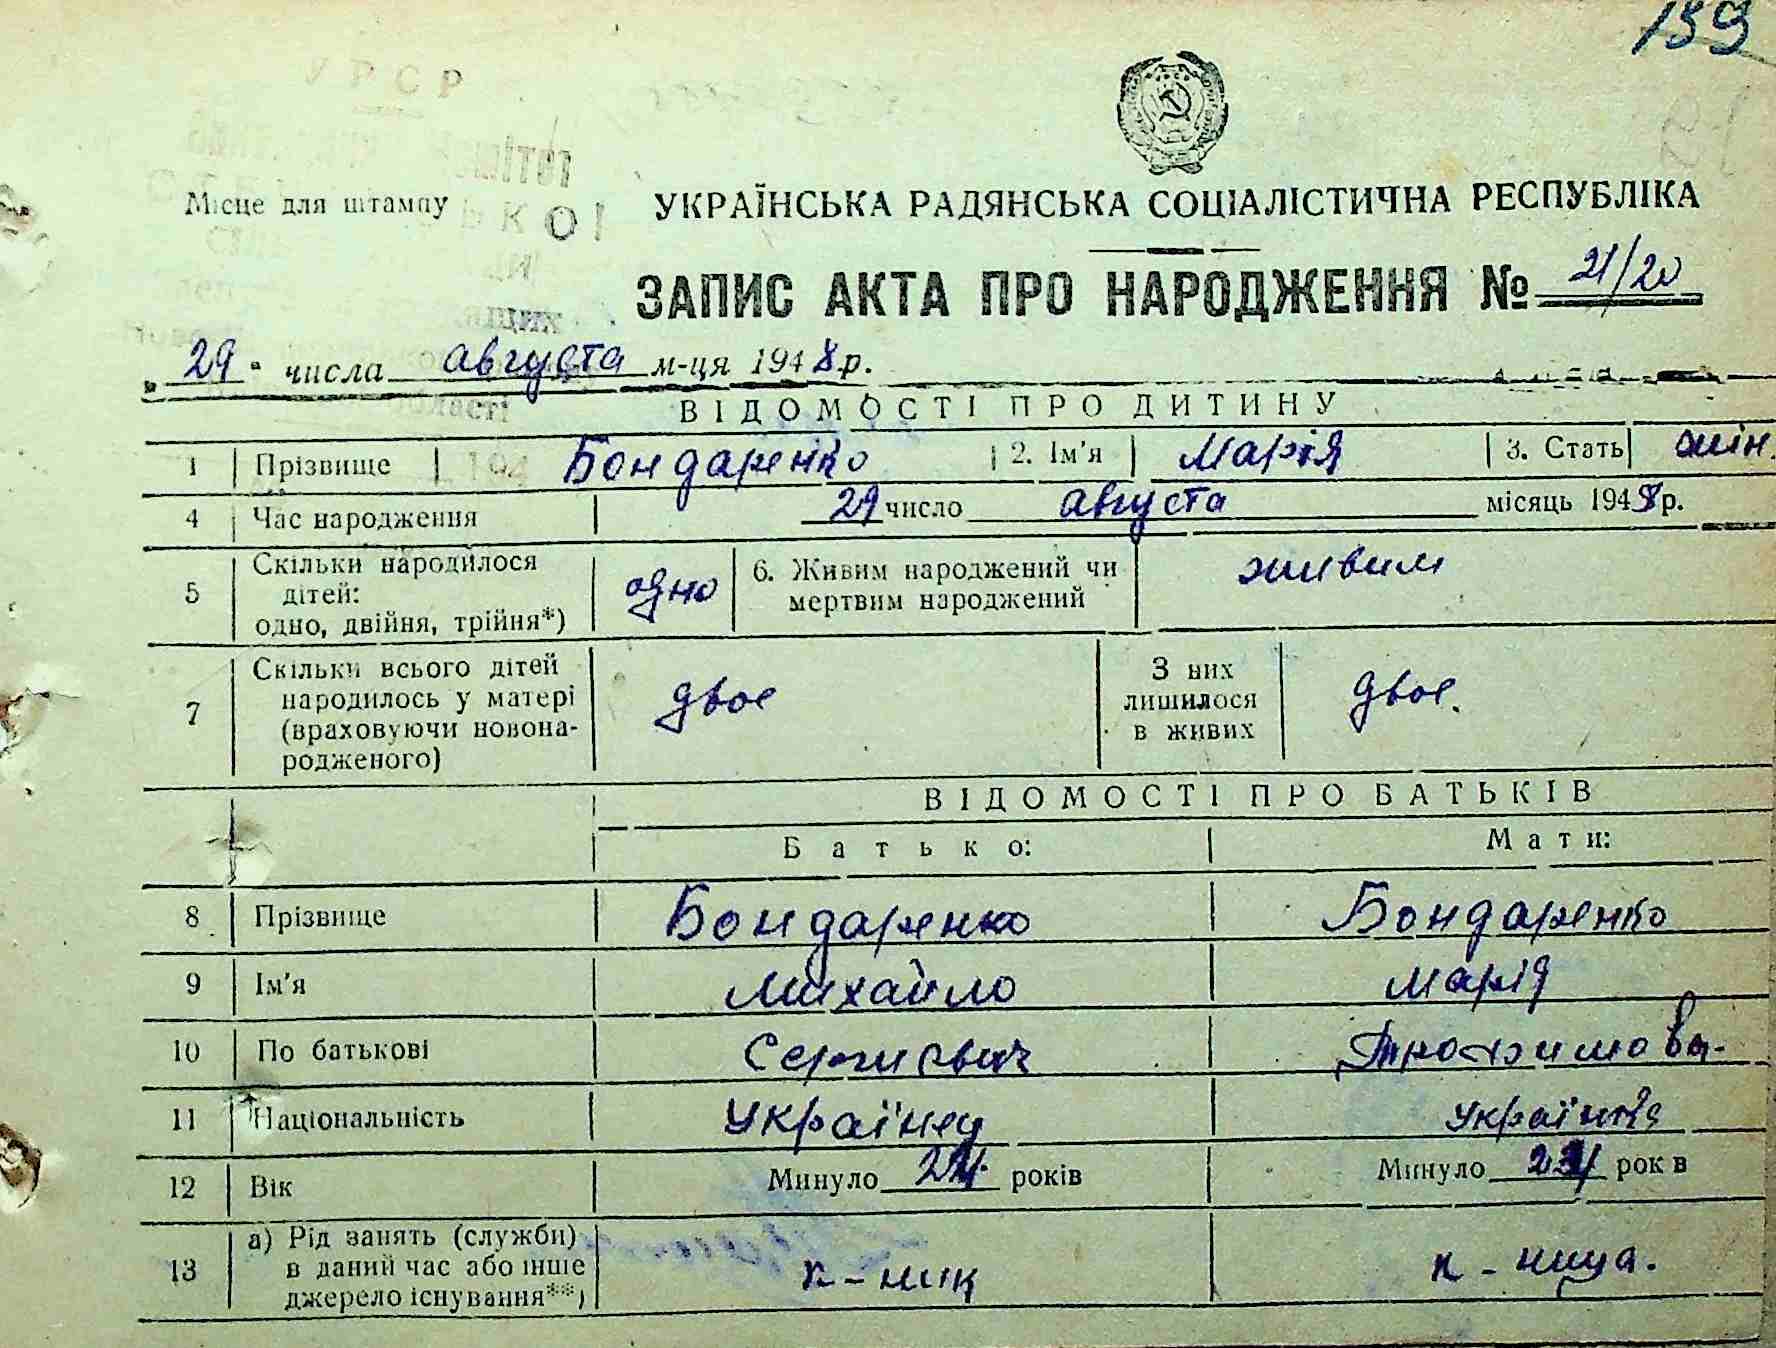 139
УРСР
Місце для штампу
УКРАЇНСЬКА РАДЯНСЬКА СОЦІАЛІСТИЧНА РЕСПУБЛІКА
ЗАПИС АКТА ПРО НАРОДЖЕННЯ № 21/20
„29" числа августа м-ця 1948 р.
області
ВІДОМОСТІ ПРО ДИТИНУ
1 Прізвище Бондаренко 2. Ім'я Марія 3. Стать жін.
4 Час народження 29 число августа місяць 1948 р.
5 Скільки народилося дітей: одно, двійня, трійня*) одно 6. Живим народжений чи мертвим народжений живим
7 Скільки всього дітей народилось у матері (враховуючи новонародженого) двое З них лишилося в живих двое.
ВІДОМОСТІ ПРО БАТЬКІВ
Батько: Мати:
8 Прізвище Бондаренко Бондаренко
9 Ім'я Михайло Марія
10 По батькові Сергиевич Трохимовн.
11 Національність Українец Українка
12 Вік Минуло років Минуло рок в
13 а) Рід занять (служби) в даний час або інше джерело існування**) к-ник к-ница.